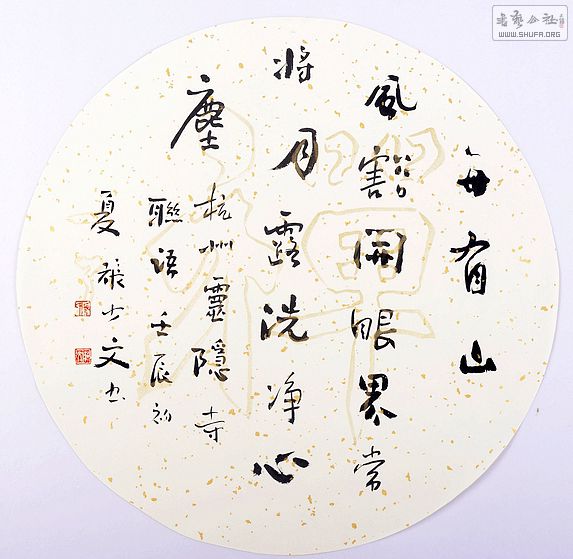 每有山
風豁開眼界常
将月露洗净心
塵
杭州靈隱寺
聯語壬辰初
夏張少文书
書藝公社
WWW.SHUFA.ORG